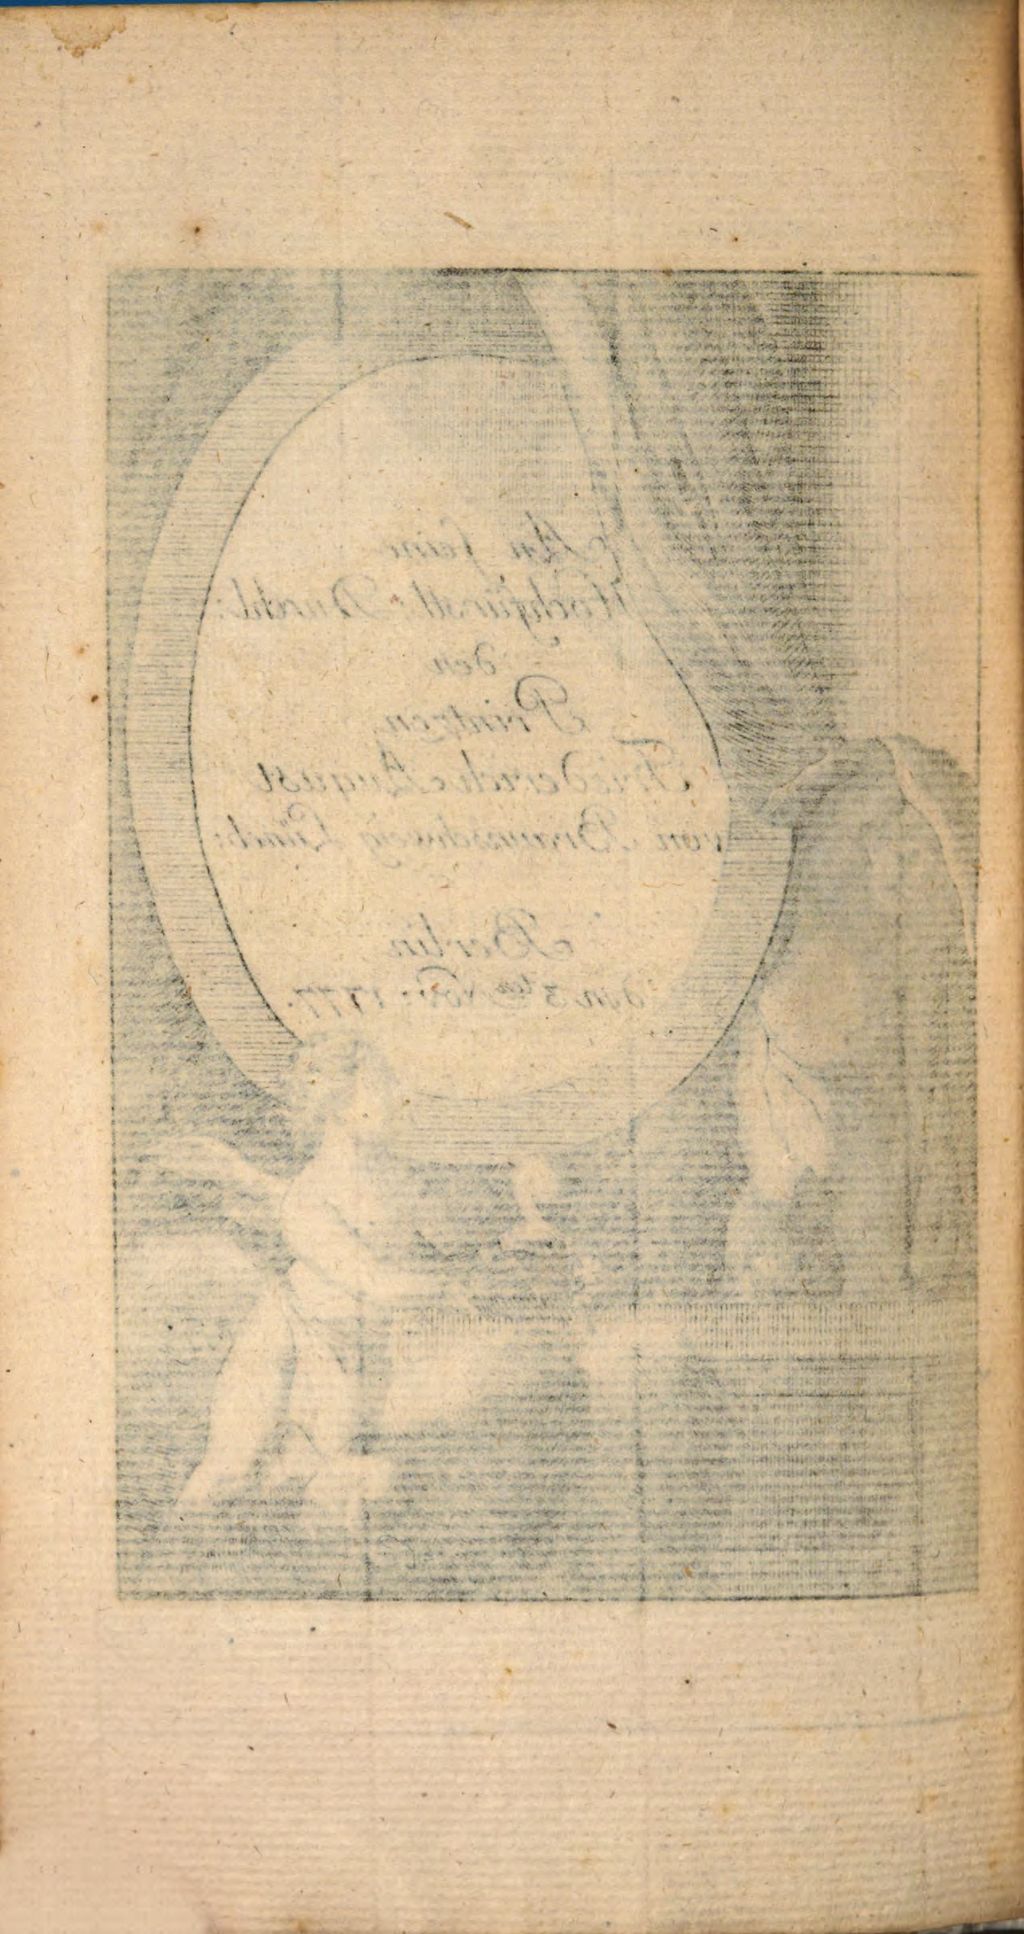 An seine
Hochfürstl: Durchl:
den
Printzen
Friderich August
von Braunschweig Lüneb:
Berlin
den 3ten Nov: 1777.